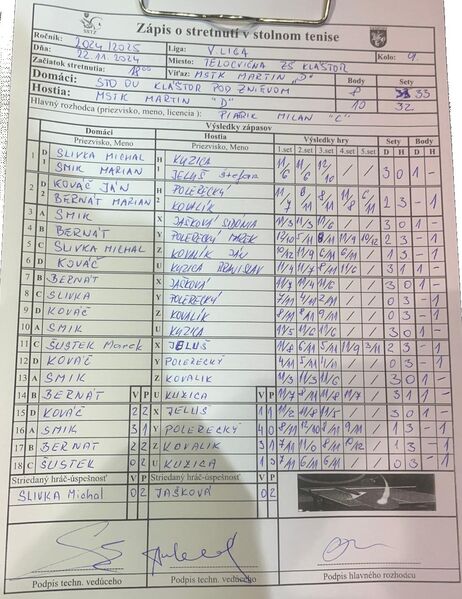 SSTZ
Zápis o stretnutí v stolnom tenise
Ročník: 2024/2025 Liga: V. LIGA
Dňa: 22.11.2024 Miesto: TELOCVIČŇA ZŠ KLÁŠTOR Kolo: 9
Začiatok stretnutia: 18⁰⁰ Víťaz: MSTK MARTIN "D" Body Sety
Domáci: STO DU KLÁŠTOR POD ZNIEVOM 8 33
Hostia: MSTK MARTIN "D" 10 32
Hlavný rozhodca (priezvisko, meno, licencia): PIATRIK MILAN "C"
Výsledky zápasov
Domáci Hostia Výsledky hry Sety Body
Priezvisko, Meno Priezvisko, Meno 1.set 2.set 3.set 4.set 5.set D H D H
1 D1 SLIVKA MICHAL H1 KUZICA 11/6 11/6 12/10 / / 3 0 1 -
SMIK MARIAN JELUŠ Stefan
2 D2 KOVÁČ JÁN H2 POLERECKÝ 2 3 - 1
BERNÁT MARIAN KOVALÍK
3 A SMIK X JAŠKOVÁ 11/3 11/3 11/6 / / 3 0 1 -
4 B BERNÁT Y POLERECKÝ 2 3 - 1
5 C SLIVKA MICHAL Z KOVALIK JÁN 1 3 - 1
6 D KOVÁČ U KUZICA BRANISLAV 11/4 11/7 8/11 11/6 / 3 1 1 -
7 B BERNÁT X JAŠKOVÁ 11/7 11/4 11/6 / / 3 0 1 -
8 C SLIVKA Y POLERECKÝ 7/11 4/11 2/11 / / 0 3 - 1
9 D KOVÁČ Z KOVALÍK 8/11 8/11 9/11 / / 0 3 - 1
10 A SMIK U KUZICA 11/5 11/6 11/6 / / 3 0 1 -
11 C ŠUSTEK Marek X JELUŠ 11/8 6/11 5/11 11/9 3/11 2 3 - 1
12 D KOVÁČ Y POLERECKÝ 4/11 5/11 4/11 / / 0 3 - 1
13 A SMIK Z KOVALIK 11/3 11/3 11/6 / / 3 0 1 -
14 B BERNÁT V P U KUZICA V P 11/7 8/11 11/8 11/7 / 3 1 1 -
15 D KOVÁČ 2 2 X JELUŠ 1 1 11/2 11/8 11/5 / / 3 0 1 -
16 A SMIK 3 1 Y POLERECKÝ 4 0 1 3 - 1
17 B BERNÁT 2 2 Z KOVALIK 3 1 7/11 11/0 8/11 10/12 / 1 3 - 1
18 C ŠUSTEK 0 2 U KUZICA 1 3 7/11 6/11 6/11 / / 0 3 - 1
Striedaný hráč-úspešnosť V P Striedaný hráč-úspešnosť V P
SLIVKA Michal 0 2 JAŠKOVÁ 0 2
Podpis techn. vedúceho Podpis techn. vedúceho Podpis hlavného rozhodcu